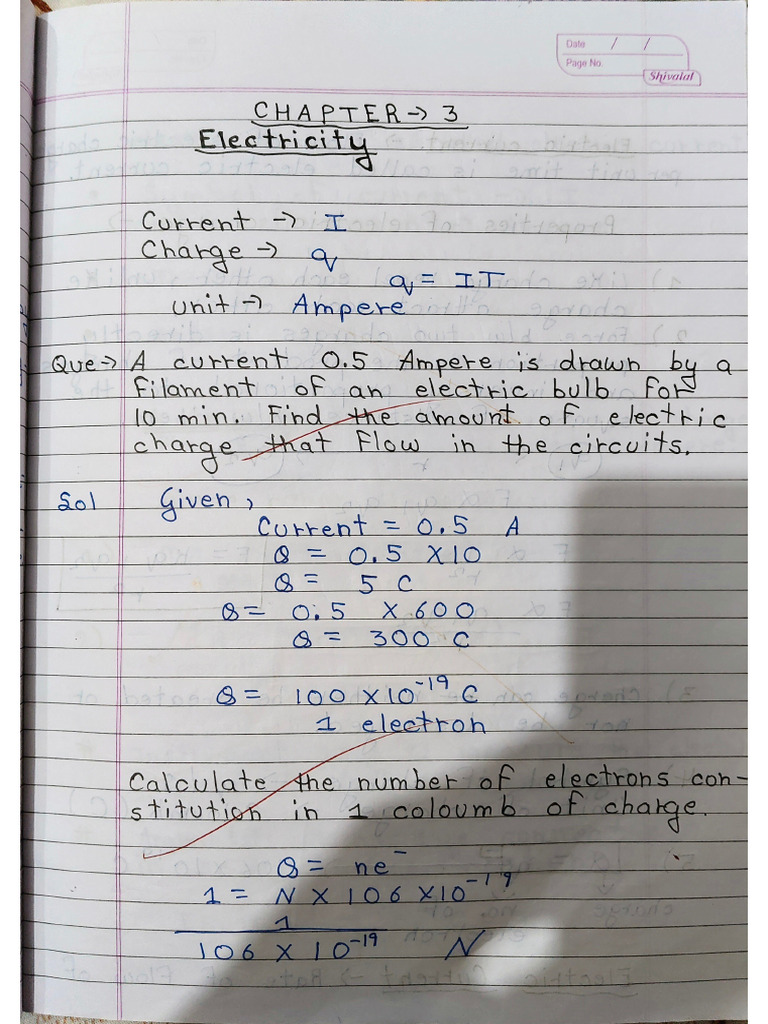 Date / /
Page No.
Shivalal
CHAPTER → 3
Electricity
Current → I
Charge → q
q = IT
unit → Ampere
Que → A current 0.5 Ampere is drawn by a
filament of an electric bulb for
10 min. Find the amount of electric
charge that flow in the circuits.
Sol Given,
Current = 0.5 A
Q = 0.5 × 10
Q = 5 C
Q = 0.5 × 600
Q = 300 C
Q = 100 × 10⁻¹⁹ C
1 electron
Calculate the number of electrons con-
stitution in 1 coloumb of charge.
Q = ne⁻
1 = N × 106 × 10⁻¹⁹
1
106 × 10⁻¹⁹ N